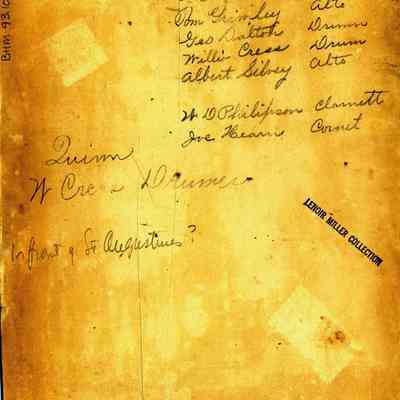 Tom Grimley Alto
Geo Daltoh Drumm
Willie Cress Drum
Albert Silvey Alto
W D Philipson Clarnett
Joe Hearn Cornet
Quinn
W Cress Drumer
In front of St Augustines?
LENOIR MILLER COLLECTION
BHM 93.